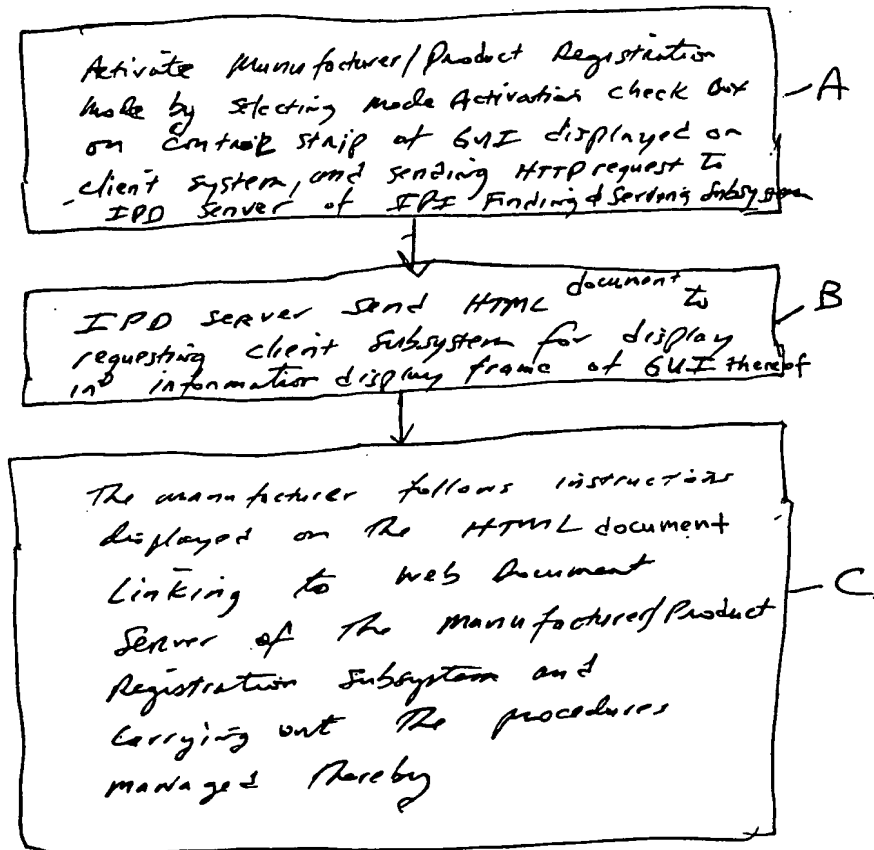 Activate Manufacturer/Product Registration
Mode by selecting Mode Activation check Box
on control strip of GUI displayed on
client system, and sending HTTP request to
IPD server of IPI Finding & Serving Subsystem
A
IPD server send HTML document to
requesting client subsystem for display
in information display frame of GUI thereof
B
The manufacturer follows instructions
displayed on the HTML document
Linking to web Document
Server of the manufacturer/Product
Registration Subsystem and
Carrying out the procedures
managed thereby
C